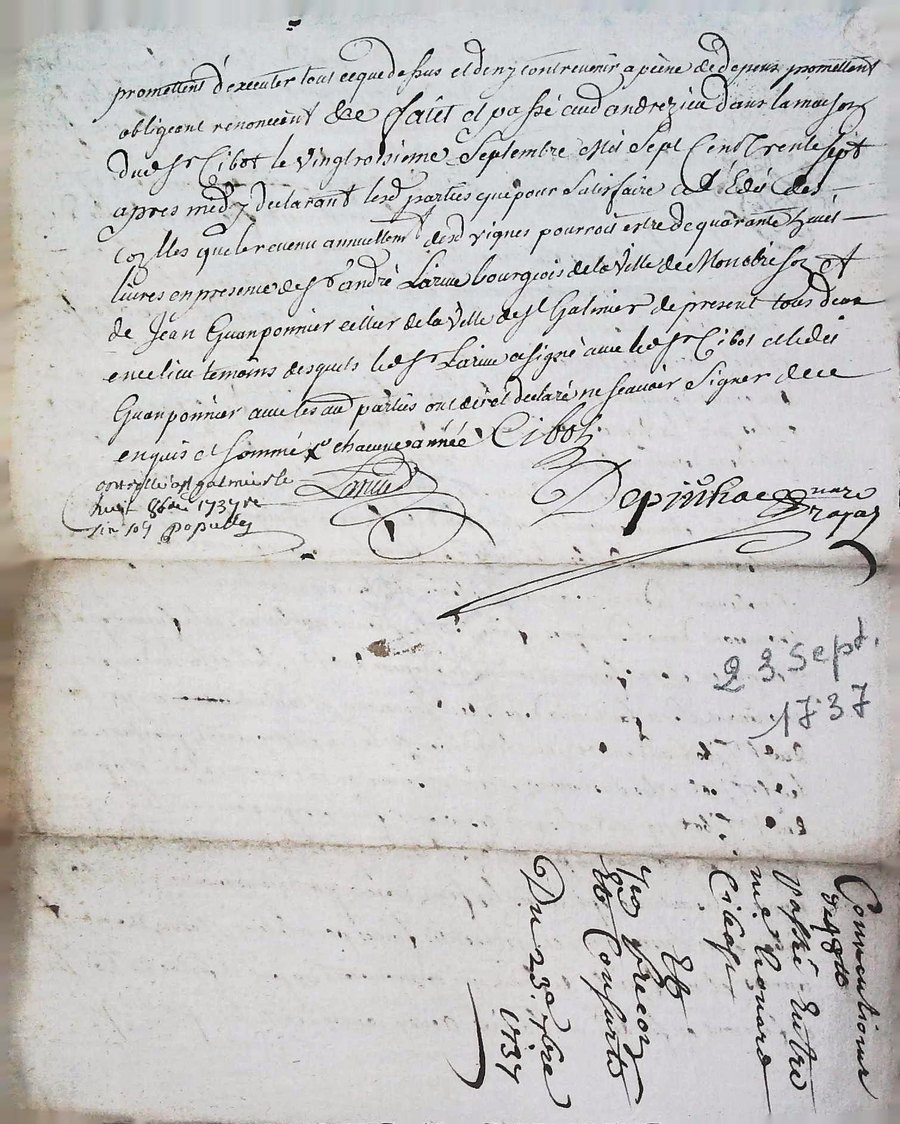 promettent d'executer tout ceque dessus et deny contrevenir a peine de depens promettent
obligeant renonceant &ce fait et passé aud andrezieu dans la maison
dud Sr Cibot le vingtroisieme Septembre Mil Sept Cent Trente Sept
apres midy declarant lesd parties que pour Satisfaire a l'Edit des
que le revenu annuellemt desd vignes pourroit estre de quarante huit
livres en presence de Sr andré Larue bourgeois de la Ville de Monbrison et
de Jean Guanponnier cellier de la Ville de St Galmier de present tous deux
en ce lieu temoins desquels led Sr Larue a signé avec led Sr Cibot et ledit
Guanponnier avec les au parties ont dit et declaré ne scavoir Signer de ce
enquis et sommé chacune année Cibot
controllé a St galmier le
huit 8bre 1737 re
six sols
Depinhac
23. Sept.
1737
Conventions
passé Entre
me
Cibost
Et
Et Consorts
Du 23e 7bre
1737